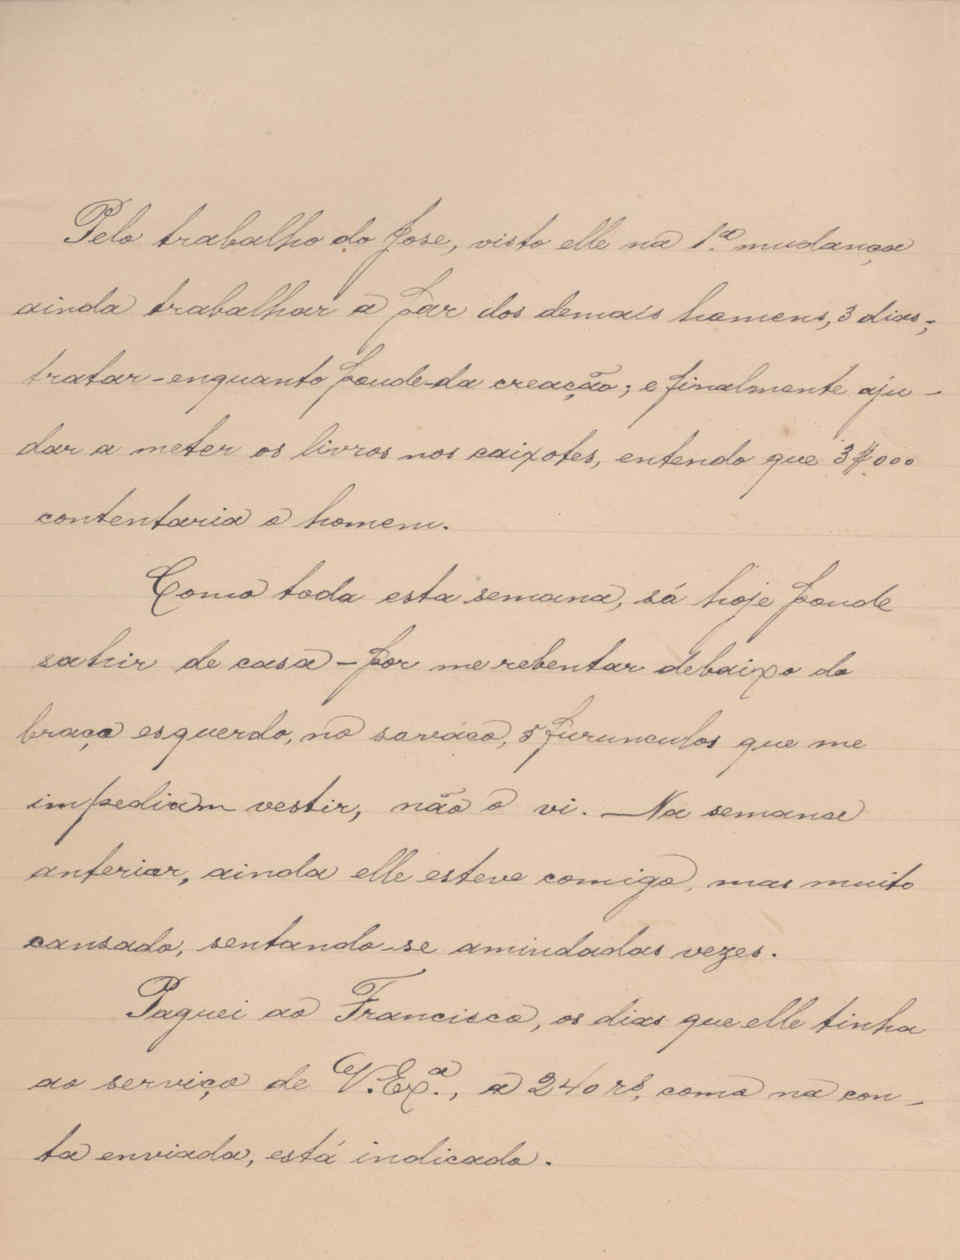 Pelo trabalho do Jose, visto elle na 1.ª mudança
ainda trabalhar a par dos demais homens, 3 dias;
tratar-enquanto poude-da creação; e finalmente aju-
dar a meter os livros nos caixotes, entendo que 3$000
contentaria o homem.
Como toda esta semana, só hoje poude
sahir de casa - por me rebentar debaixo do
braço esquerdo, no sovaco, 5 furunculos que me
impediam vestir, não o vi. - Na semana
anterior, ainda elle esteve comigo, mas muito
cansado, sentando-se amiudadas vezes.
Paguei ao Francisco, os dias que elle tinha
ao serviço de V. Ex.ª, a 240 rs, como na con-
ta enviada, está indicado.